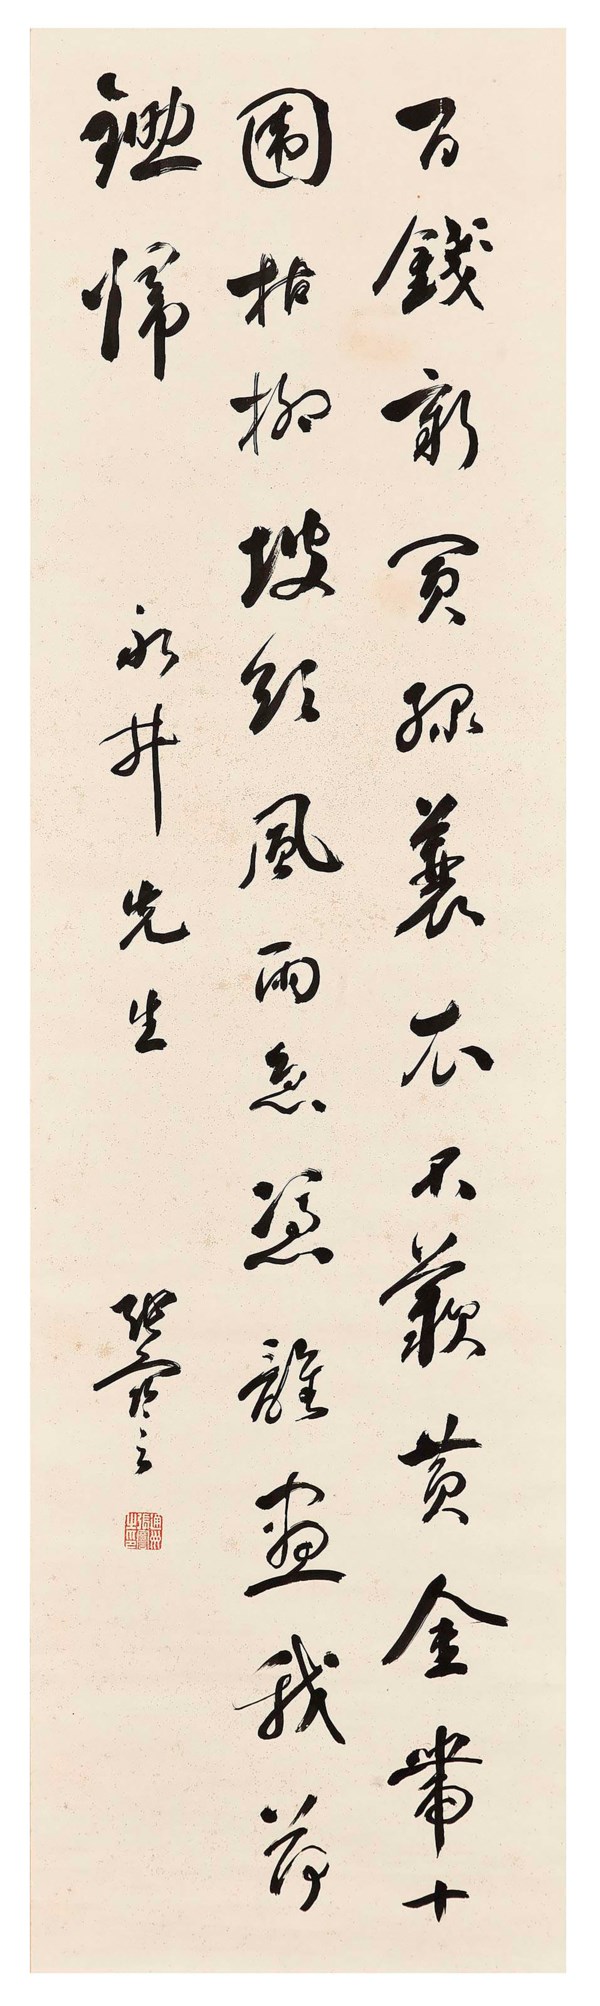 百錢新買綠蓑衣不羨黃金帶十
圍枯柳坡頭風雨急憑誰畫我荷
鋤歸
永井先生
張謇
通州張謇之印